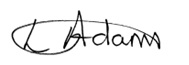 L Adams